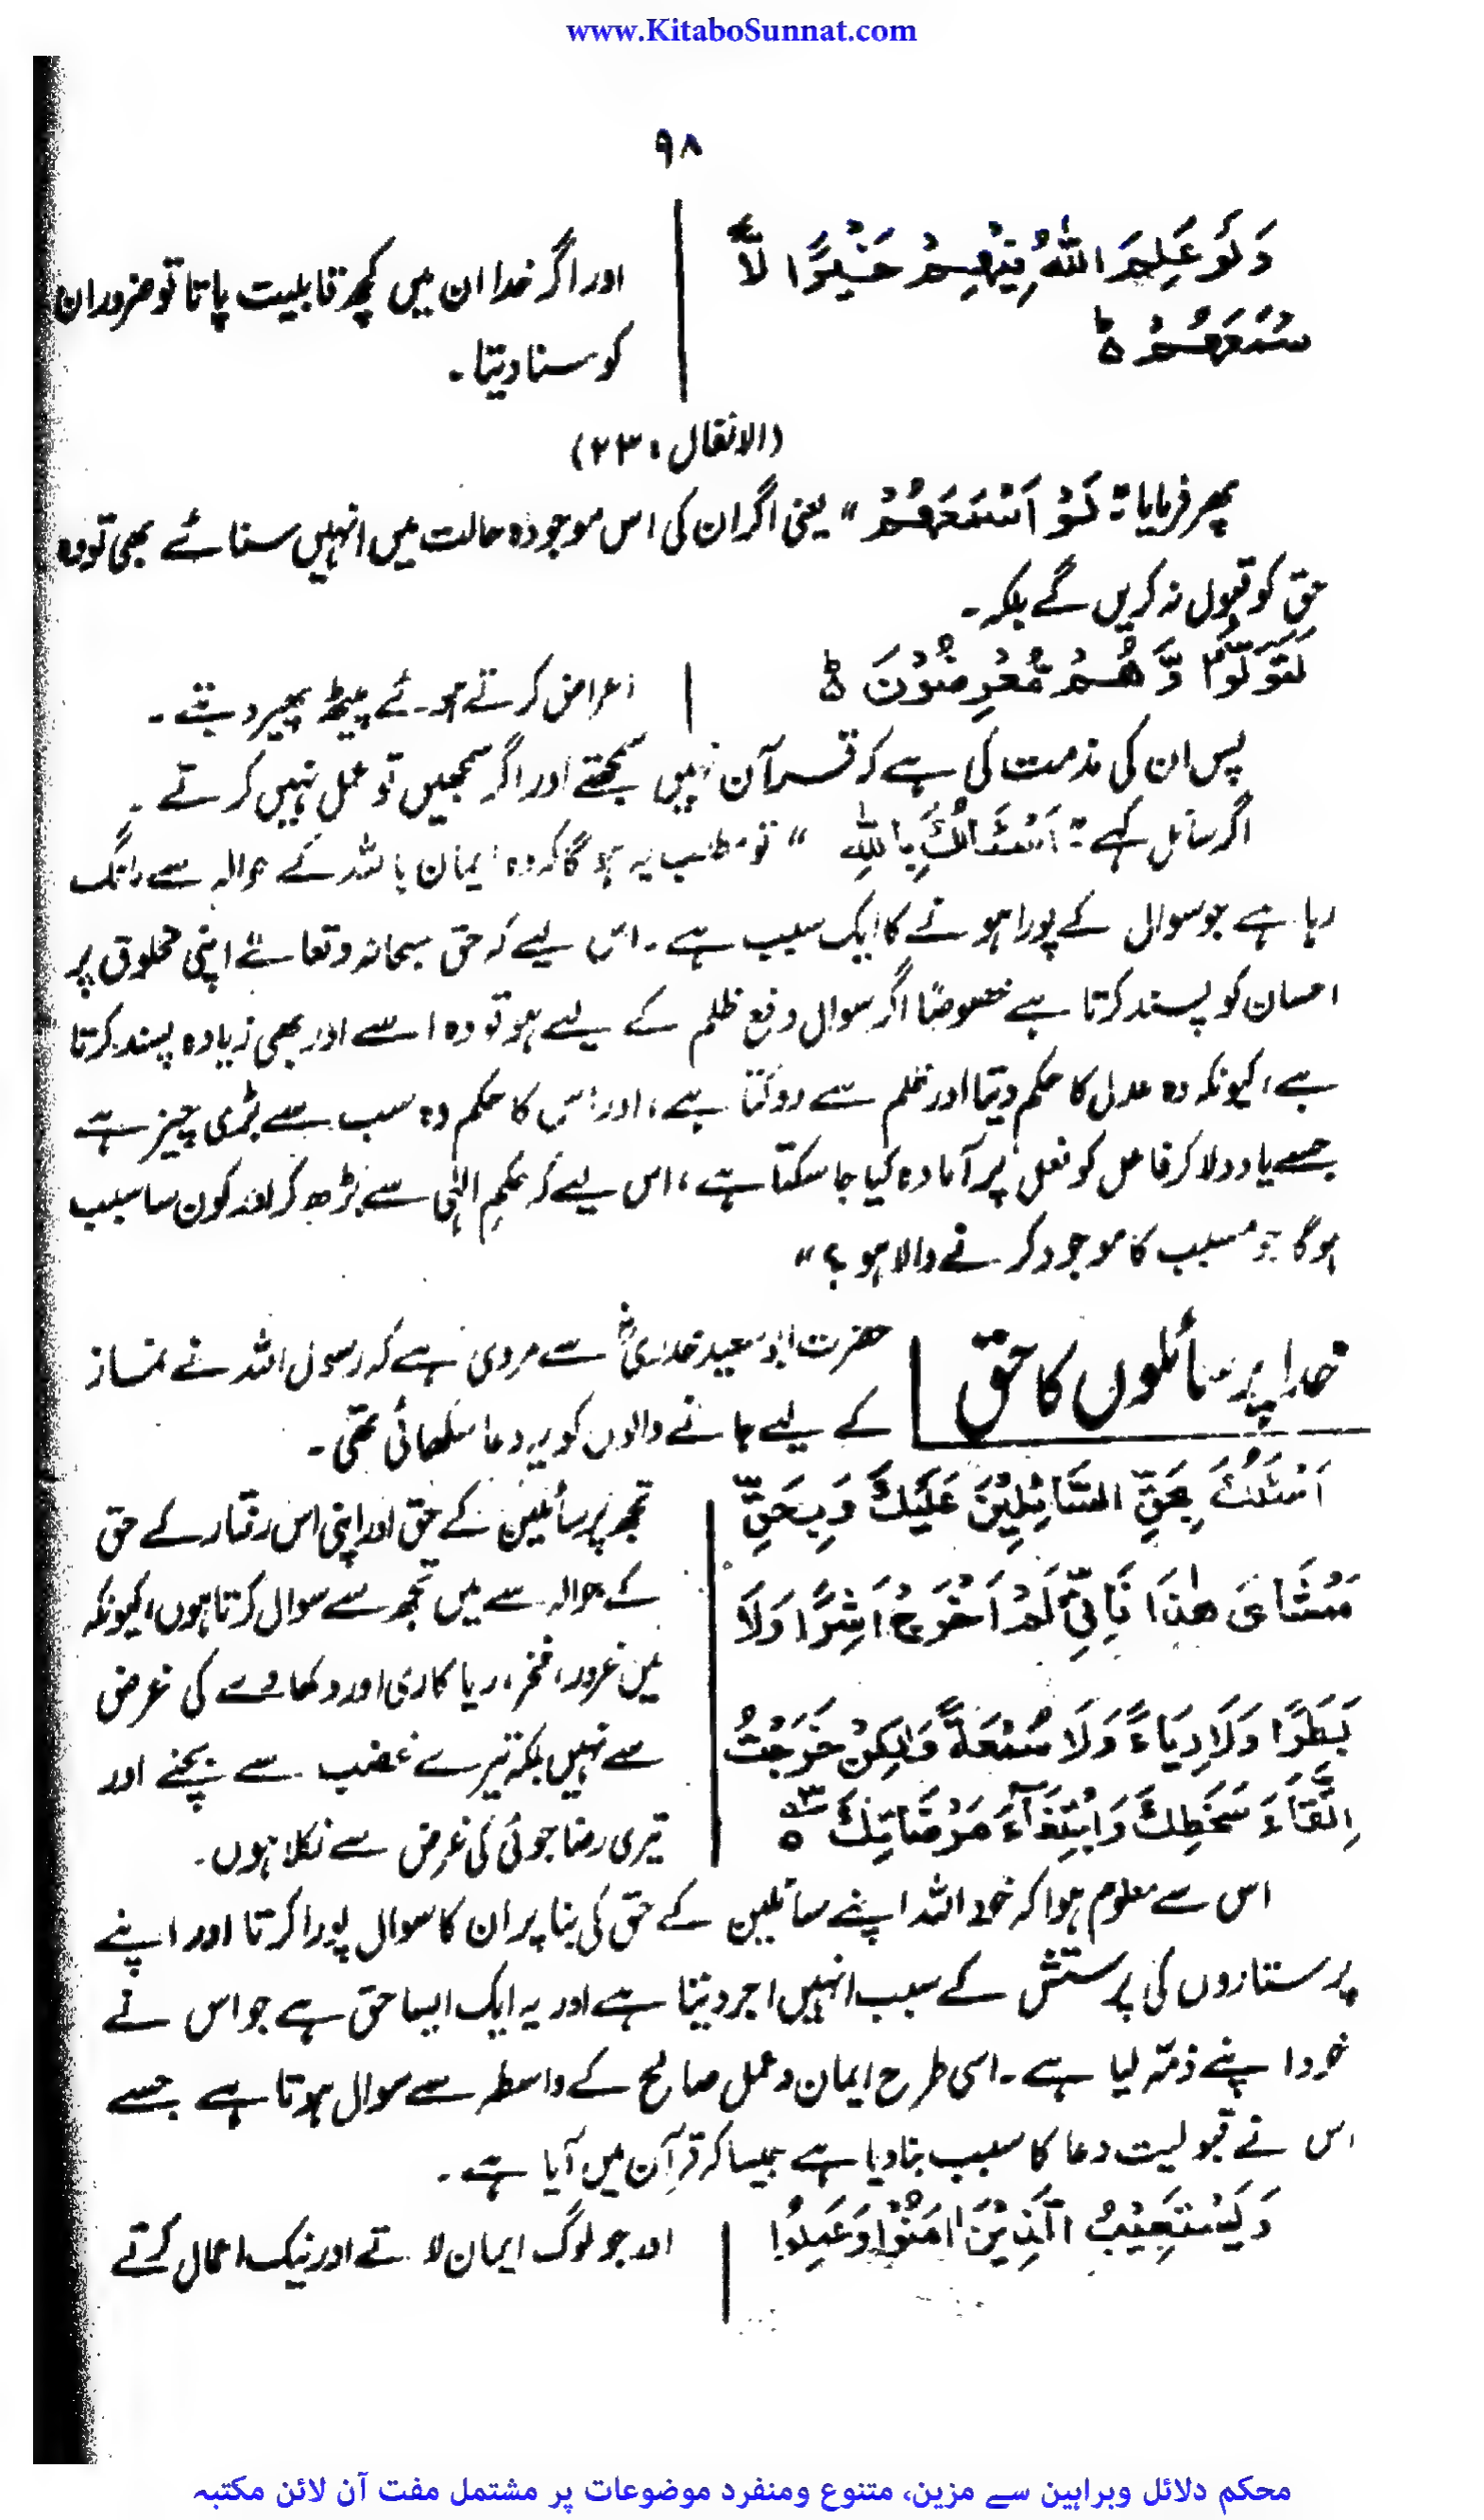 www.KitaboSunnat.com
۹۸
وَلَوْ عَلِمَ اللّٰهُ فِيْهِمْ خَيْرًا لَّاَ
سْمَعَهُمْ ط
اور اگر خدا ان میں کچھ قابلیت پاتا تو ضرور ان
کو سنا دیتا۔
(الانفال: ۲۳)
پھر فرمایا: لَوْ اَسْمَعَهُمْ " یعنی اگر ان کی اس موجودہ حالت میں انہیں سنائے بھی تو وہ
حق کو قبول نہ کریں گے بلکہ۔
لَتَوَلَّوْا وَّهُمْ مُّعْرِضُوْنَ ط
اعراض کرتے ہوئے پیٹھ پھیر دیتے۔
پس ان کی مذمت کی ہے کہ قرآن نہیں سمجھتے اور اگر سمجھیں تو عمل نہیں کرتے۔
اگر سائل کہے: اَسْئَالُكَ بِاللّٰهِ " تو مطلب یہ ہوگا کہ وہ ایمان باللہ کے حوالہ سے مانگ
رہا ہے جو سوال کے پورا ہونے کا ایک سبب ہے۔ اس لیے کہ حق سبحانہ وتعالےٰ اپنی مخلوق پر
احسان کو پسند کرتا ہے خصوصًا اگر سوال دفع ظلم کے لیے ہو تو وہ اسے اور بھی زیادہ پسند کرتا
ہے، کیونکہ وہ عدل کا حکم دیتا اور ظلم سے روکتا ہے، اور اس کا حکم وہ سب سے بڑی چیز ہے
جسے یاد دلا کر فاعل کو فعل پر آمادہ کیا جا سکتا ہے، اس لیے کہ حکمِ الٰہی سے بڑھ کر اور کون سا سبب
ہوگا جو مسبب کا موجود کرنے والا ہو؟"
خدا پر سائلوں کا حق
حضرت ابو سعید خدریؓ سے مروی ہے کہ رسول اللہ نے نماز
کے لیے جانے والوں کو یہ دعا سکھائی تھی۔
اَسْئَلُكَ بِحَقِّ السَّائِلِيْنَ عَلَيْكَ وَبِحَقِّ
مَمْشَاىَ هٰذَا فَاِنِّىْ لَمْ اَخْرُجْ اَشِرًا وَلَا
بَطَرًا وَلَا رِيَاءً وَلَا سُمْعَةً وَلٰكِنْ خَرَجْتُ
اِتِّقَاءَ سَخَطِكَ وَابْتِغَآءَ مَرْضَاتِكَ ۵۳ ه
تجھ پر سائلین کے حق اور اپنی اس رفتار کے حق
کے حوالہ سے میں تجھ سے سوال کرتا ہوں، کیونکہ
میں غرور، فخر، ریاکاری اور دکھاوے کی غرض
سے نہیں بلکہ تیرے غضب سے بچنے اور
تیری رضا جوئی کی غرض سے نکلا ہوں۔
اس سے معلوم ہوا کہ خود اللہ اپنے سائلین کے حق کی بنا پر ان کا سوال پورا کرتا اور اپنے
پرستاروں کی پرستش کے سبب انہیں اجر دیتا ہے اور یہ ایک ایسا حق ہے جو اس نے
خود اپنے ذمّہ لیا ہے۔ اسی طرح ایمان و عمل صالح کے واسطہ سے سوال ہوتا ہے جسے
اس نے قبولیت دعا کا سبب بنا دیا ہے جیسا کہ قرآن میں آیا ہے۔
وَيَسْتَجِيْبُ الَّذِيْنَ اٰمَنُوْا وَعَمِلُوا
اور جو لوگ ایمان لاتے اور نیک اعمال کرتے
محکم دلائل وبراہین سے مزین، متنوع ومنفرد موضوعات پر مشتمل مفت آن لائن مکتبہ